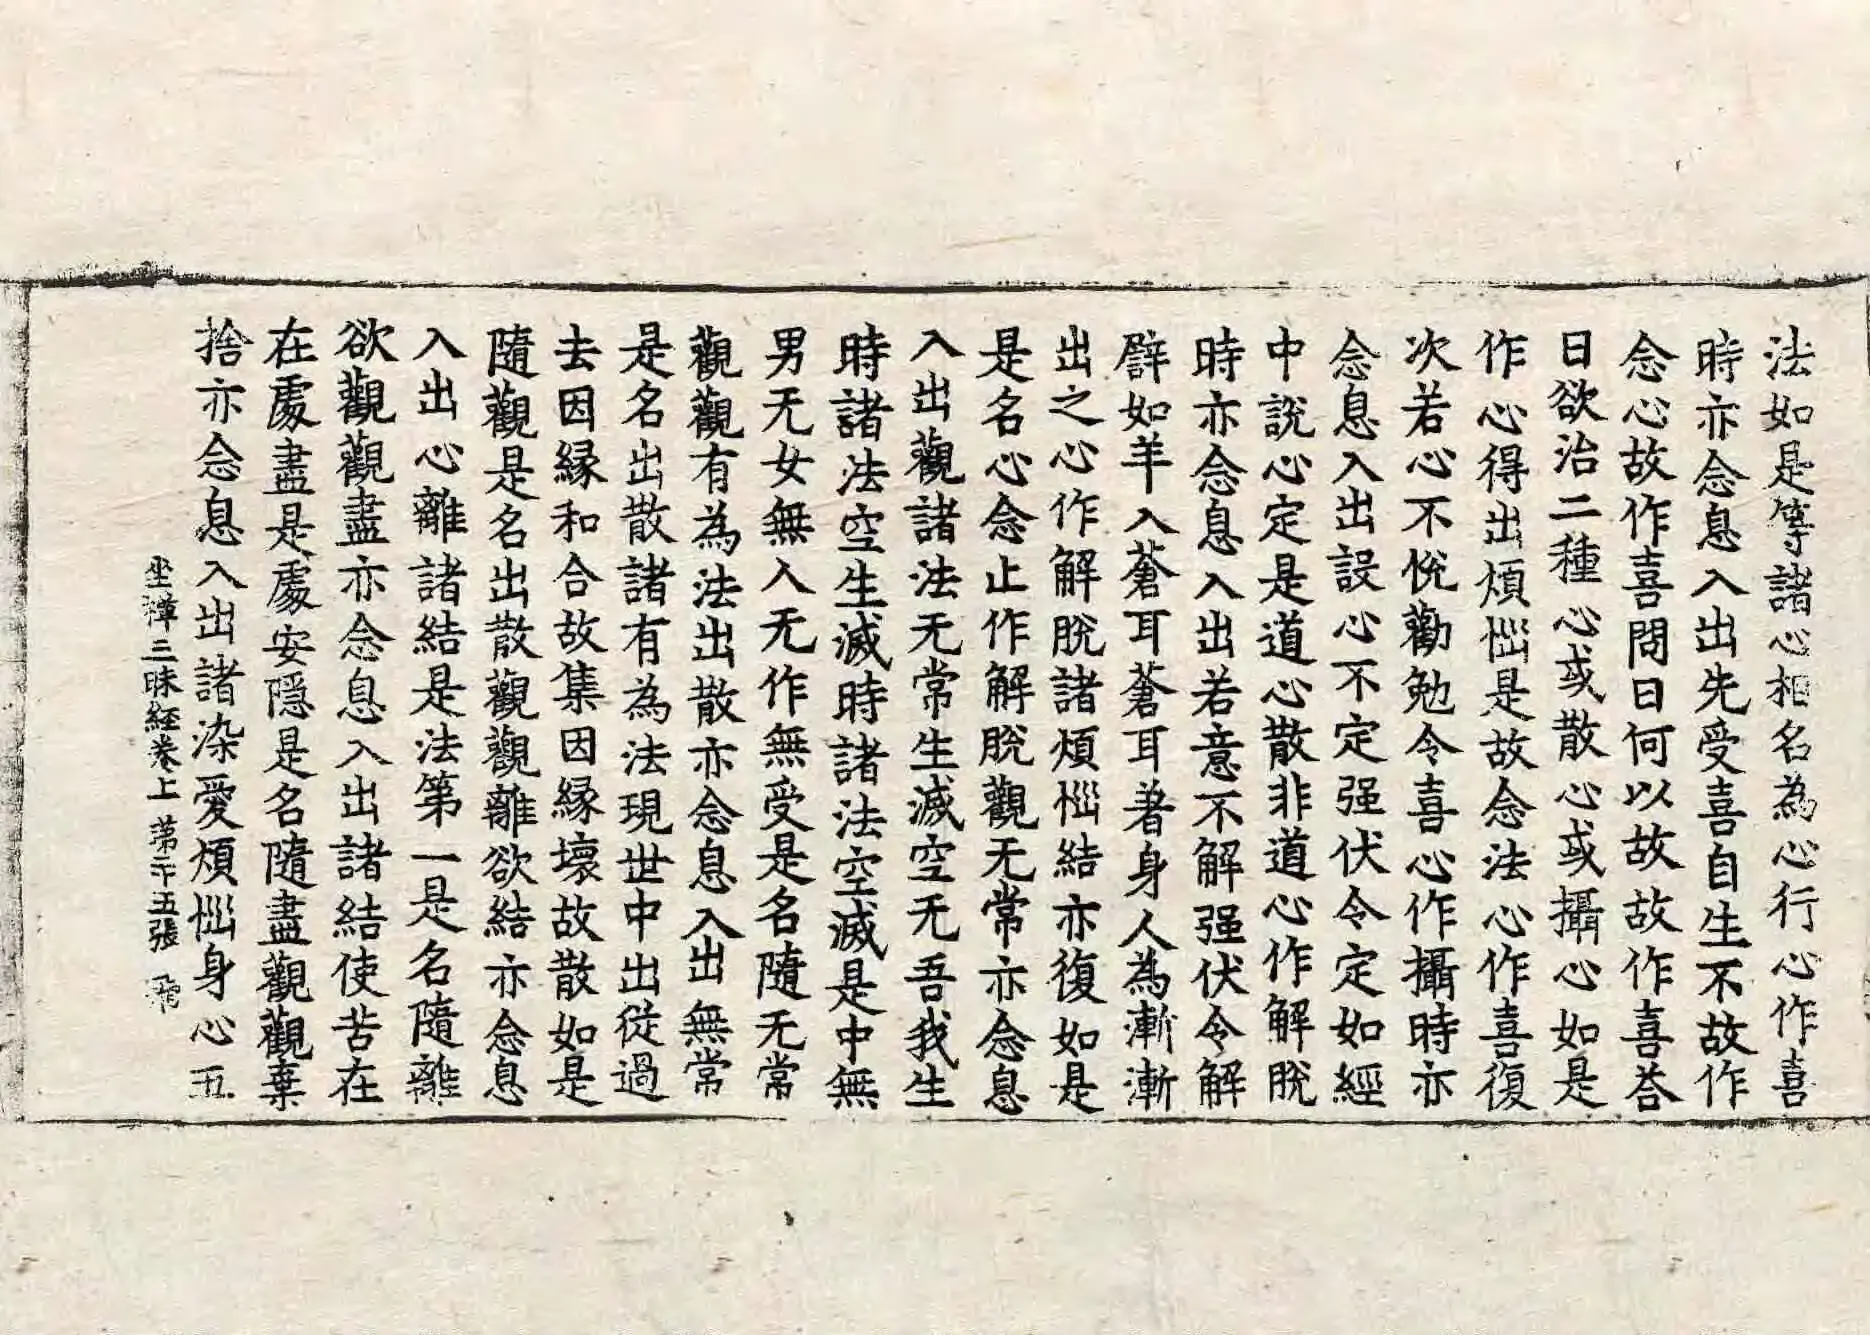 法如是等諸心相名為心行心作喜
時亦念息入出先受喜自生不故作
念心故作喜問曰何以故故作喜荅
曰欲治二種心或散心或攝心如是
作心得出煩惱是故念法心作喜復
次若心不悅勸勉令喜心作攝時亦
念息入出設心不定强伏令定如經
中說心定是道心散非道心作解脫
時亦念息入出若意不解强伏令解
譬如羊入蒼耳蒼耳著身人為漸漸
出之心作解脫諸煩惱結亦復如是
是名心念止作解脫觀无常亦念息
入出觀諸法无常生滅空无吾我生
時諸法空生滅時諸法空滅是中無
男无女無人无作無受是名隨无常
觀觀有為法出散亦念息入出無常
是名出散諸有為法現世中出從過
去因緣和合故集因緣壞故散如是
隨觀是名出散觀觀離欲結亦念息
入出心離諸結是法第一是名隨離
欲觀觀盡亦念息入出諸結使苦在
在處盡是處安隱是名隨盡觀觀棄
捨亦念息入出諸染愛煩惱身心五
坐禪三昧経卷上 第二十五張